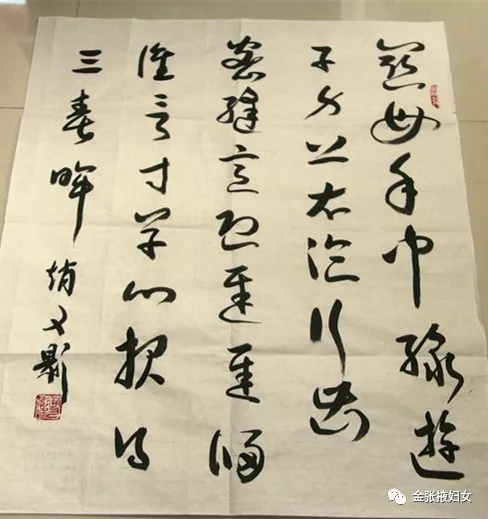 慈母手中線遊
子身上衣臨行密
密縫意恐遲遲歸
誰言寸草心報得
三春暉 趙文
金张掖妇女